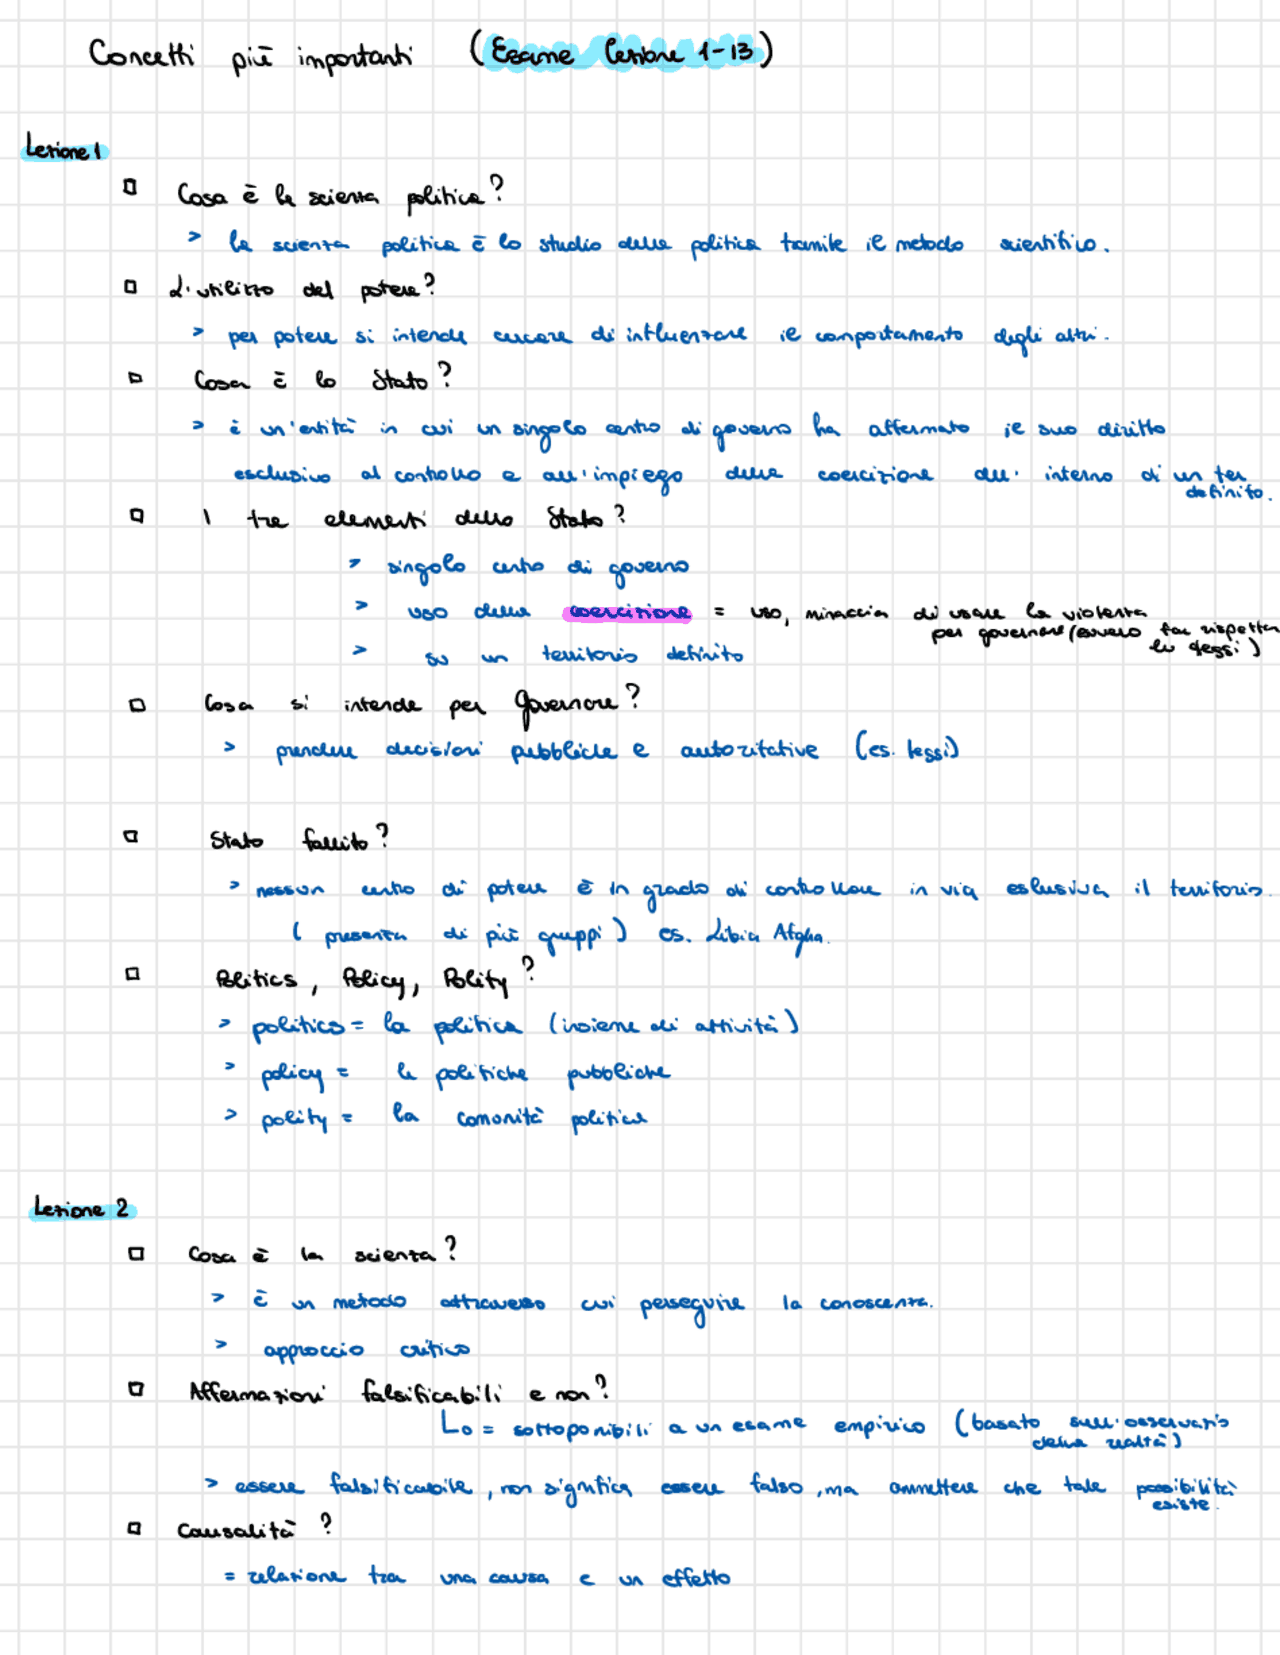 Concetti più importanti (Esame Lezione 1-13)
Lezione 1
Cosa è la scienza politica?
> la scienza politica è lo studio della politica tramite il metodo scientifico.
L'utilizzo del potere?
> per potere si intende cercare di influenzare il comportamento degli altri.
Cosa è lo Stato?
> è un'entità in cui un singolo centro di governo ha affermato il suo diritto
esclusivo al controllo e all'impiego della coercizione all'interno di un ter
definito.
I tre elementi dello Stato?
> singolo centro di governo
> uso della coercizione = uso, minaccia di usare la violenza
per governare (ovvero far rispettar
le leggi)
> su un territorio definito
Cosa si intende per governare?
> prendere decisioni pubbliche e autoritative (es. leggi)
Stato fallito?
> nessun centro di potere è in grado di controllare in via eslusiva il territorio.
(presenza di più gruppi) es. Libia Afgha.
Politics, Policy, Polity?
> politics = la politica (insieme di attività)
> policy = le politiche pubbliche
> polity = la comunità politica
Lezione 2
Cosa è la scienza?
> è un metodo attraverso cui perseguire la conoscenza.
> approccio critico
Affermazioni falsificabili e non?
Lo = sottoponibili a un esame empirico (basato sull'osservazio
della realtà)
> essere falsificabile, non significa essere falso, ma ammettere che tale possibilità
esiste.
Causalità?
= relazione tra una causa e un effetto